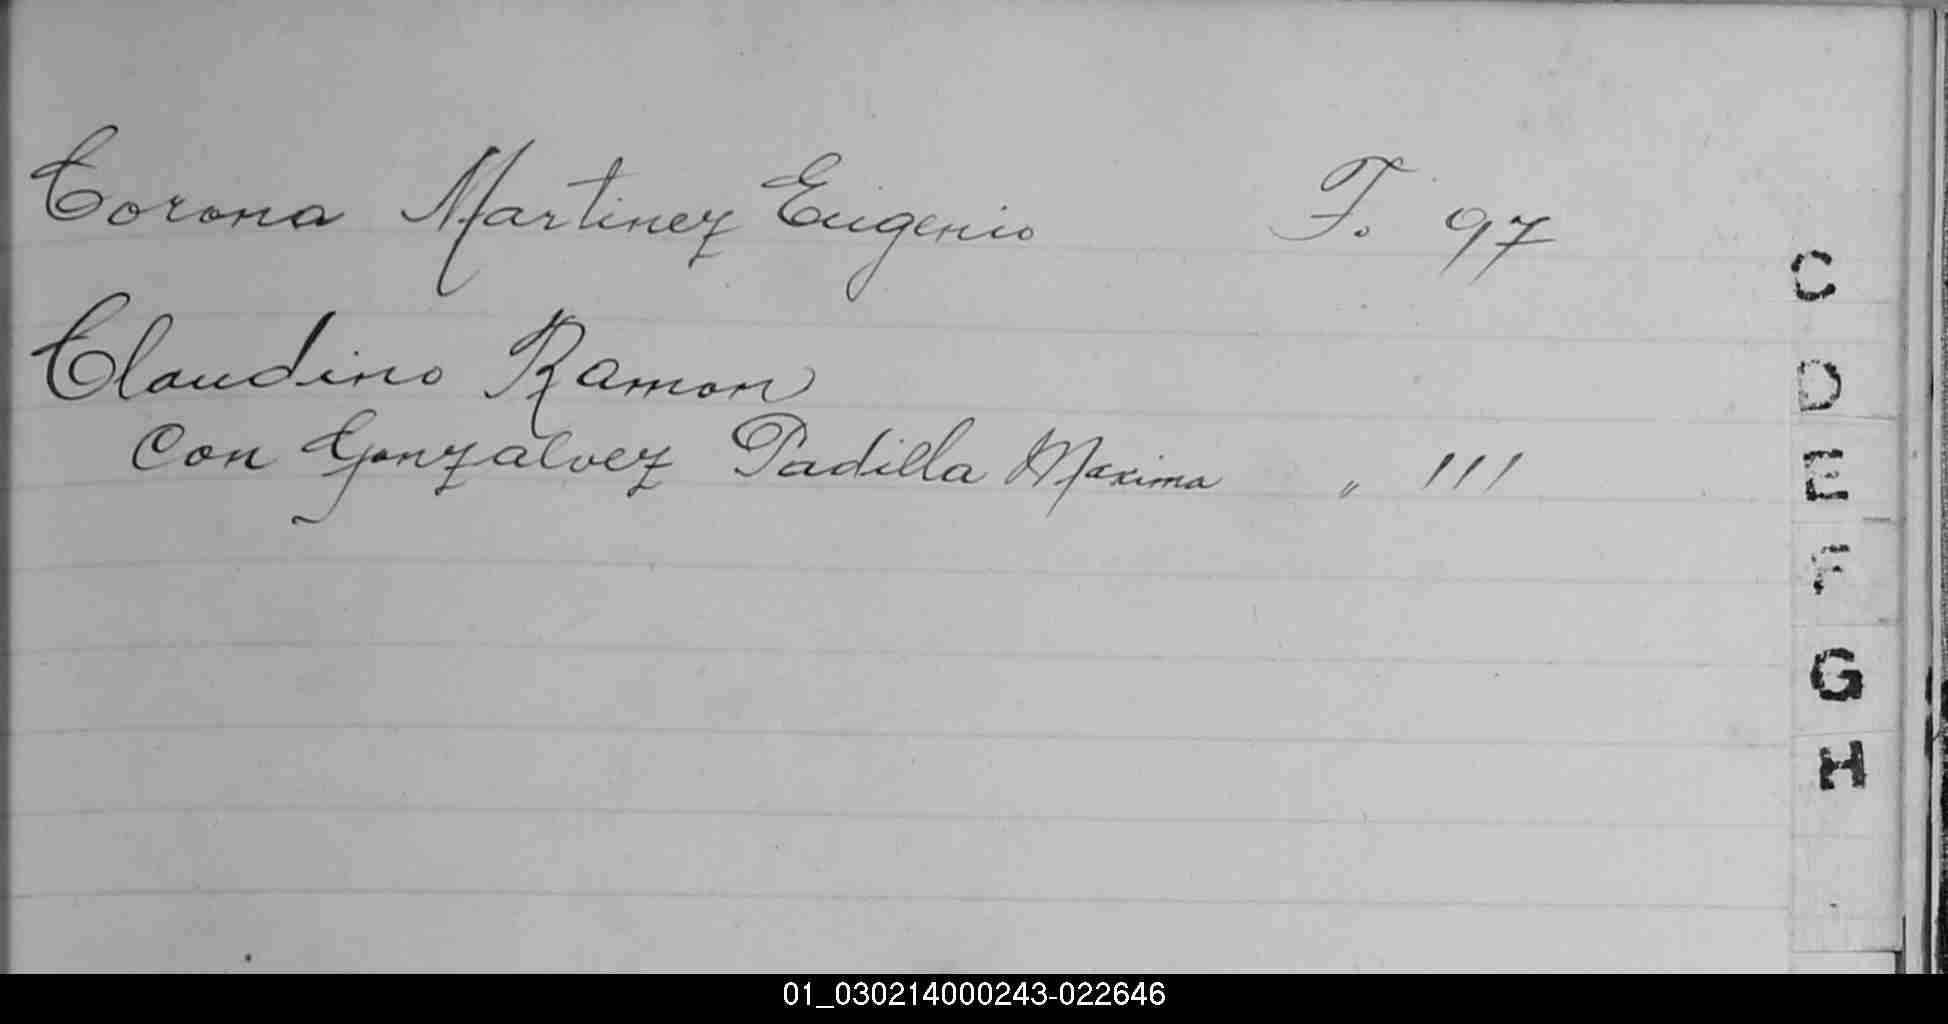 Corona Martinez Eugenio F. 97
Claudino Ramon
Con Gonzalvez Padilla Maxima " 111
C
D
E
F
G
H
01_030214000243-022646